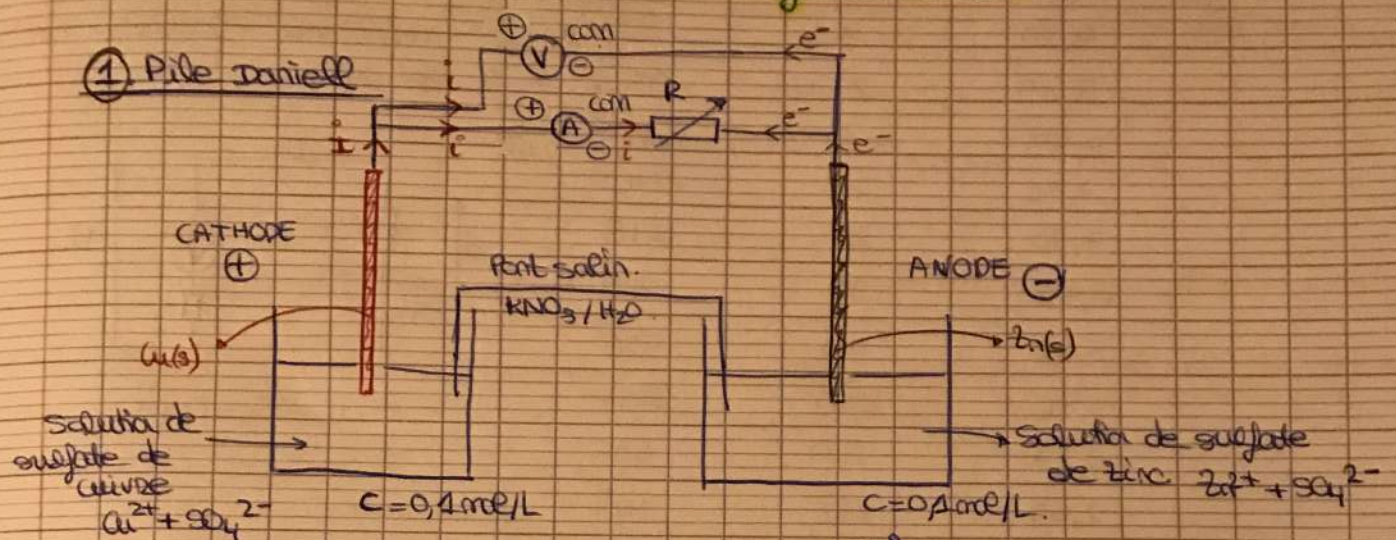 ① Pile Daniell
⊕ V ⊖ com
e-
i
⊕ A ⊖ com
i
R
e-
i
i
e-
CATHODE
⊕
Pont salin.
KNO3 / H2O
ANODE ⊖
Cu(s)
Zn(s)
solution de
sulfate de
cuivre
Cu2+ + SO4 2-
C = 0,1 mol/L
C = 0,1 mol/L.
solution de sulfate
de zinc Zn2+ + SO4 2-